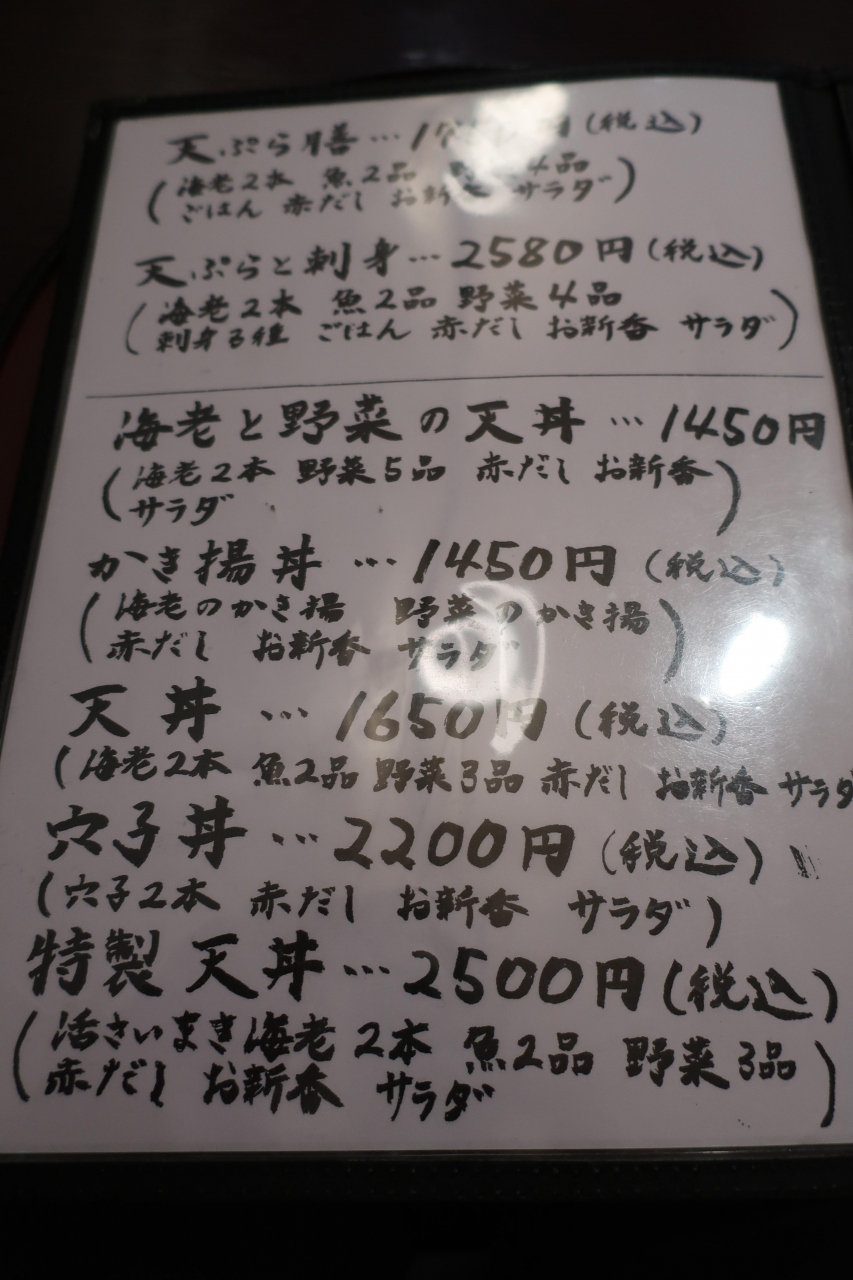 天ぷら膳…1 円(税込)
(海老2本 魚2品 4品
ごはん 赤だし お新香 サラダ)
天ぷらと刺身…2580円(税込)
(海老2本 魚2品 野菜4品
刺身3種 ごはん 赤だし お新香 サラダ)
海老と野菜の天丼…1450円
(海老2本 野菜5品 赤だし お新香
サラダ)
かき揚丼…1450円(税込)
(海老のかき揚 野菜のかき揚
赤だし お新香 サラダ)
天丼…1650円(税込)
(海老2本 魚2品 野菜3品 赤だし お新香 サラダ
穴子丼…2200円(税込)
(穴子2本 赤だし お新香 サラダ)
特製天丼…2500円(税込)
(活さいまき海老2本 魚2品 野菜3品
赤だし お新香 サラダ)